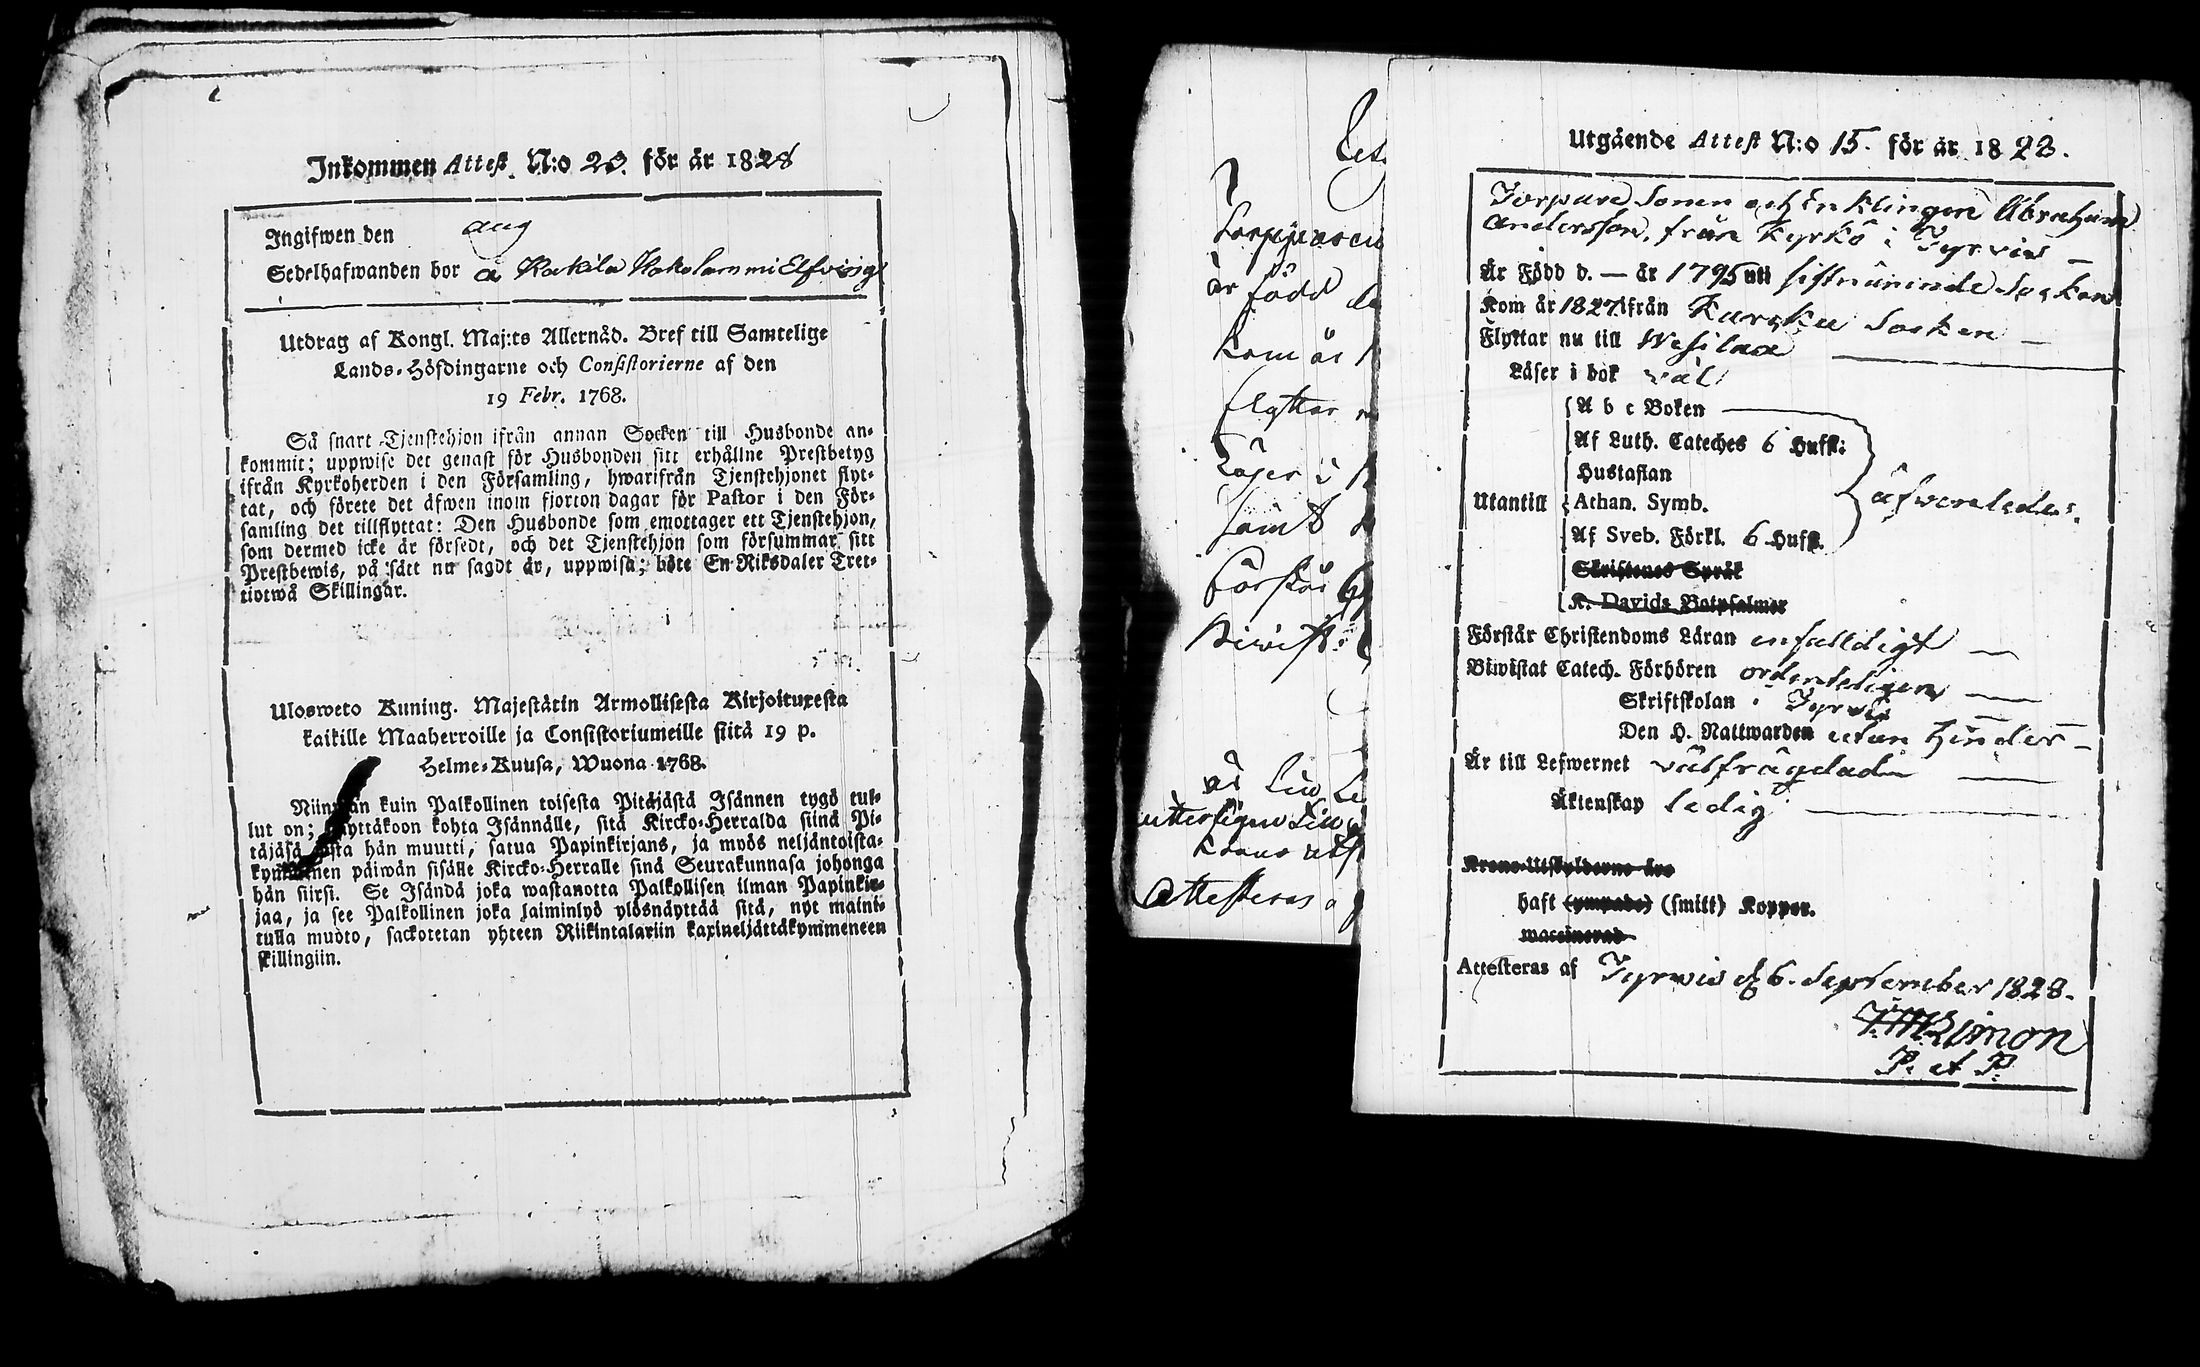 Inkommen Attest N:o 20. för år 1828
Ingifwen den aug
Sedelhafwanden bor å Kakila Kokolammi Elfving
Utdrag af Kongl. Maj:ts Allernåd. Bref till Samtelige
Lands-Höfdingarne och Consistorierne af den
19 Febr. 1768.
Så snart Tjenstehjon ifrån annan Socken till Husbonde an-
kommit; uppwise det genast för Husbonden sitt erhållne Prestbetyg
ifrån Kyrkoherden i den Församling, hwarifrån Tjenstehjonet flyt-
tat, och förete det äfwen inom fjorton dagar för Pastor i den För-
samling det tillflyttat: Den Husbonde som emottager ett Tjenstehjon,
som dermed icke är försedt, och det Tjenstehjon som försummar sitt
Prestbewis, på sätt nu sagdt är, uppwisa; böte En Riksdaler Tret-
tiotwå Skillingar.
Ulosweto Kuning. Majestätin Armollisesta Kirjoituxesta
kaikille Maaherroille ja Consistoriumeille siitä 19 p.
Helme-Kuusa, Wuona 1768.
kuin Palkollinen toisesta Pitäjästä Isännen tygö tul-
lut on; kohta Isännälle, sitä Kircko-Herralda siinä Pi-
täjäsä hän muutti, satua Papinkirjans, ja myös neljäntoista-
päiwän sisälle Kircko-Herralle sinä Seurakunnasa johonga
hän siirsi. Se Isändä joka wastanotta Palkollisen ilman Papinkir-
jaa, ja see Palkollinen joka laiminlyö ylösnäyttää sitä, nyt maini-
tulla muoto, sackotetan yhteen Riikintalariin kaxineljättäkymmeneen
skillingiin.
är född
kom år
flyttar
Läser i
samt
förstår
Biwist:
Attesteras
Utgående Attest N:o 15. för år 1828.
Torpare Sonen och Enklingen Abraham
Andersson, från Kyrkö i Tyrvis
Är Född d. — år 1795 uti sistnämnde Socken
Kom år 1827 ifrån Kurcku Socken
Flyttar nu till Wesilax
Läser i bok väl
A b c Boken
Af Luth. Cateches 6 Hufst:
Hustaflan
Utantill Athan. Symb. äfwenledes.
Af Sveb. Förkl. 6 Hufst.
Skriftenes Språk
K. Davids Botpsalmer
Förstår Christendoms Läran enfalldigt
Biwistat Catech. Förhören ordenteligen
Skriftskolan i Tyrvis
Den H. Nattwarden utan hinder
Är till Lefwernet välfrägdad
Äktenskap ledig
Krono-Utskylderne äro
haft (ympade) (smitt) Koppor.
waccinerad
Attesteras af Tyrvis d. 6. September 1828.
Simon
P. et P.